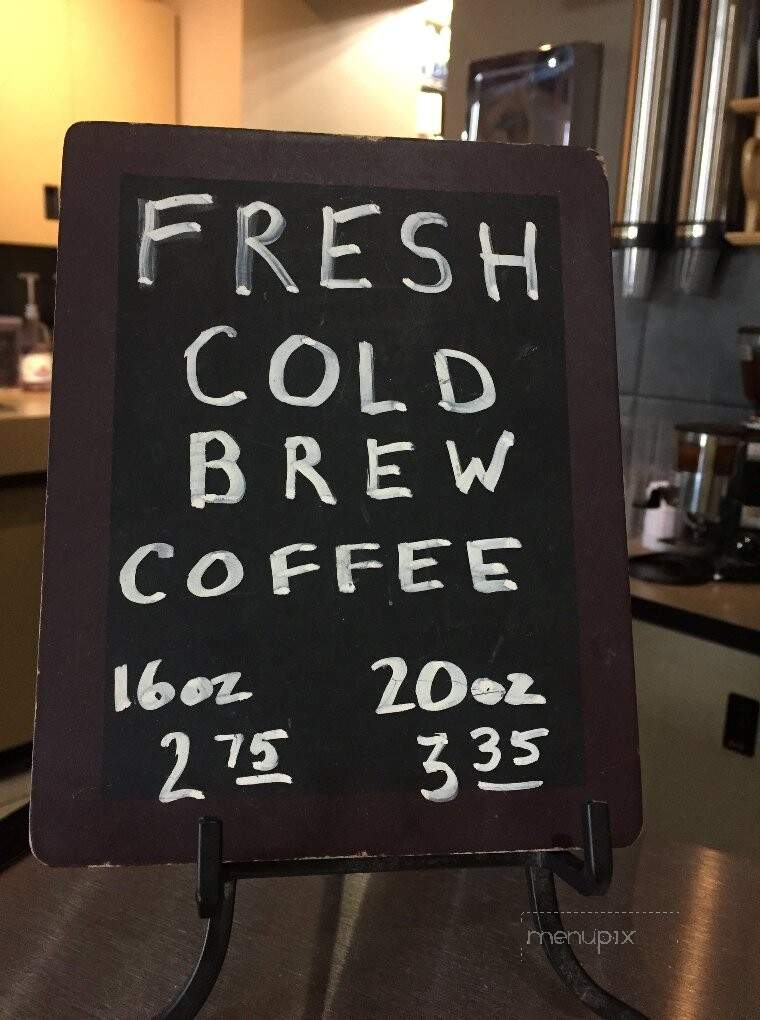 FRESH
COLD
BREW
COFFEE
16oz 20oz
2 75 3 35
menupix